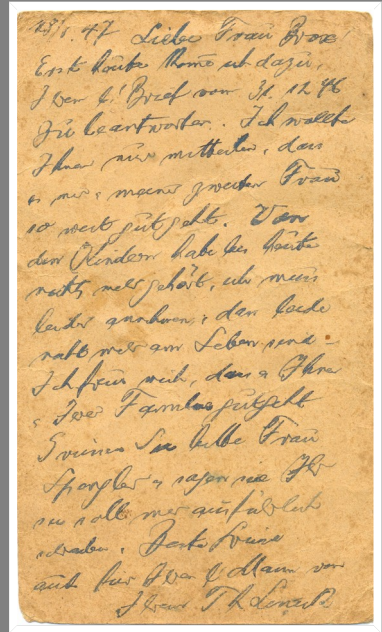 47 Liebe Frau
Erst heute komme ich dazu,
Ihren l. Brief vom 31.12.46
zu beantworten. Ich wollte
Ihnen nur mitteilen, dass
es mir u. meiner zweiten Frau
so weit gut geht. Von
den Kindern habe bis heute
nichts mehr gehört, ich muss
leider annehmen, dass beide
nicht mehr am Leben sind
Ich freue mich, dass es Ihnen
u. Ihrer Familie gut geht
Grüssen Sie liebe Frau
Spangler u. sagen sie Ihr
sie soll mir ausführlich
schreiben. Beste Grüsse
auch für Ihren l. Mann von
Ihrem Th